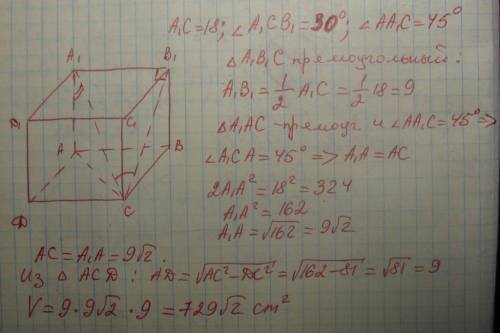 A₁C=18; ∠A₁CB₁=30°; ∠AA₁C=45°
△A₁B₁C прямоугольный:
A₁B₁=1/2 A₁C=1/2 18=9
△A₁AC-прямоуг. и ∠AA₁C=45°=>
∠A₁CA=45°=>A₁A=AC
2A₁A²=18²=324
A₁A²=162
A₁A=√162=9√2
A₁
B₁
D₁
C₁
A
B
D
C
AC=A₁A=9√2.
Из △ACD: AD=√AC²-DC²=√162-81=√81=9
V=9·9√2·9=729√2 cm²